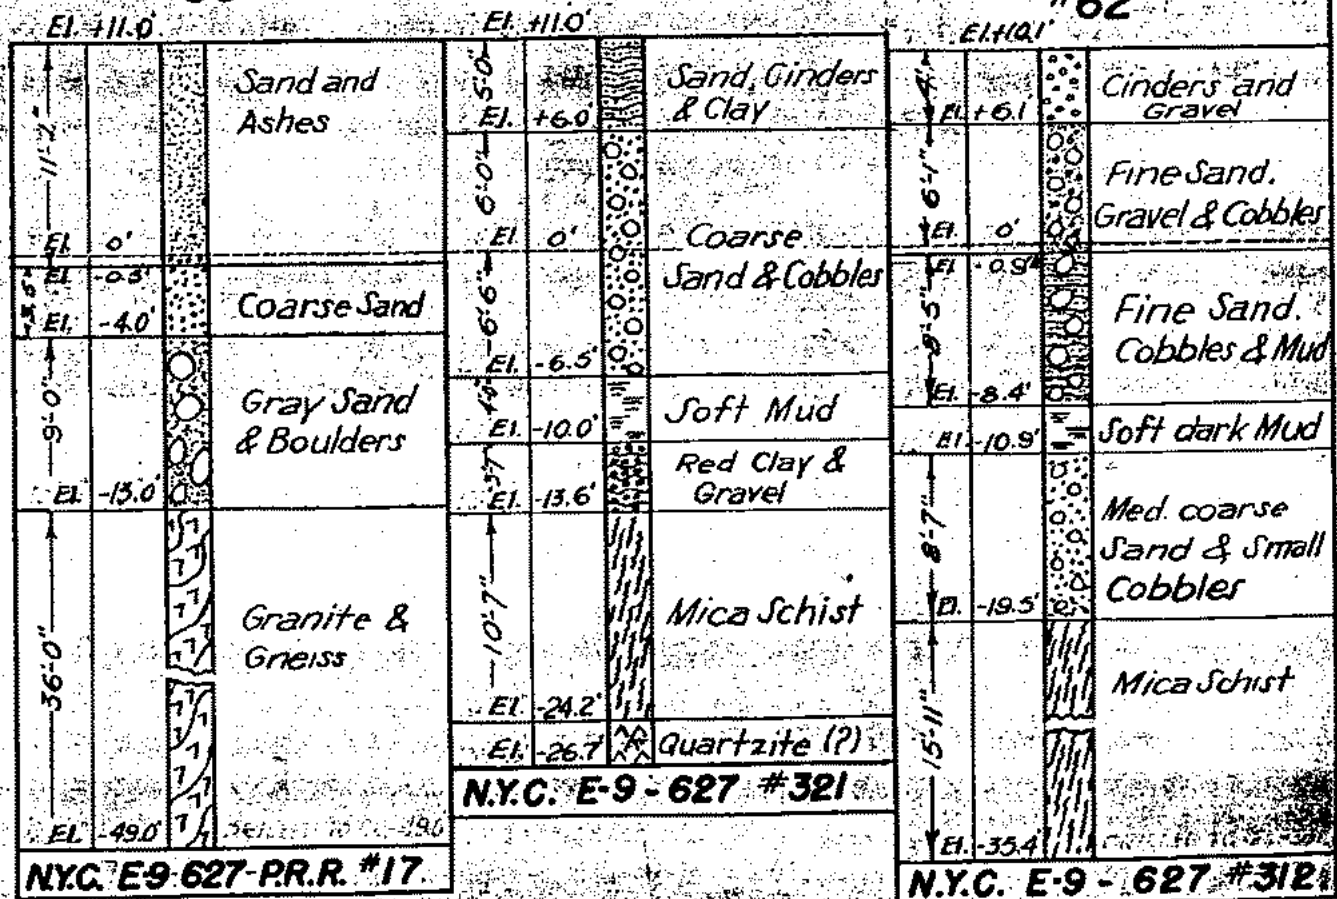 El. +11.0'
11'-2"
Sand and
Ashes
El. 0'
El. -0.5'
3'-6"
Coarse Sand
El. -4.0'
9'-0"
Gray Sand
& Boulders
El. -13.0'
36'-0"
Granite &
Gneiss
El. -49.0'
N.Y.C. E-9-627-P.R.R. #17.
El. +11.0'
5'-0"
Sand, Cinders
& Clay
El. +6.0'
6'-0"
El. 0'
Coarse
Sand & Cobbles
6'-6"
El. -6.5'
Soft Mud
El. -10.0'
Red Clay &
Gravel
El. -13.6'
10'-7"
Mica Schist
El. -24.2'
El. -26.7'
Quartzite (?)
N.Y.C. E-9-627 #321
#62
El. +10.1'
4'
Cinders and
Gravel
El. +6.1
6'-1"
Fine Sand.
Gravel & Cobbles
El. 0'
El. -0.9'
8'-5"
Fine Sand.
Cobbles & Mud
El. -8.4'
Soft dark Mud
El. -10.9'
8'-7"
Med. coarse
Sand & Small
Cobbles
El. -19.5'
15'-11"
Mica Schist
El. -35.4'
N.Y.C. E-9-627 #312